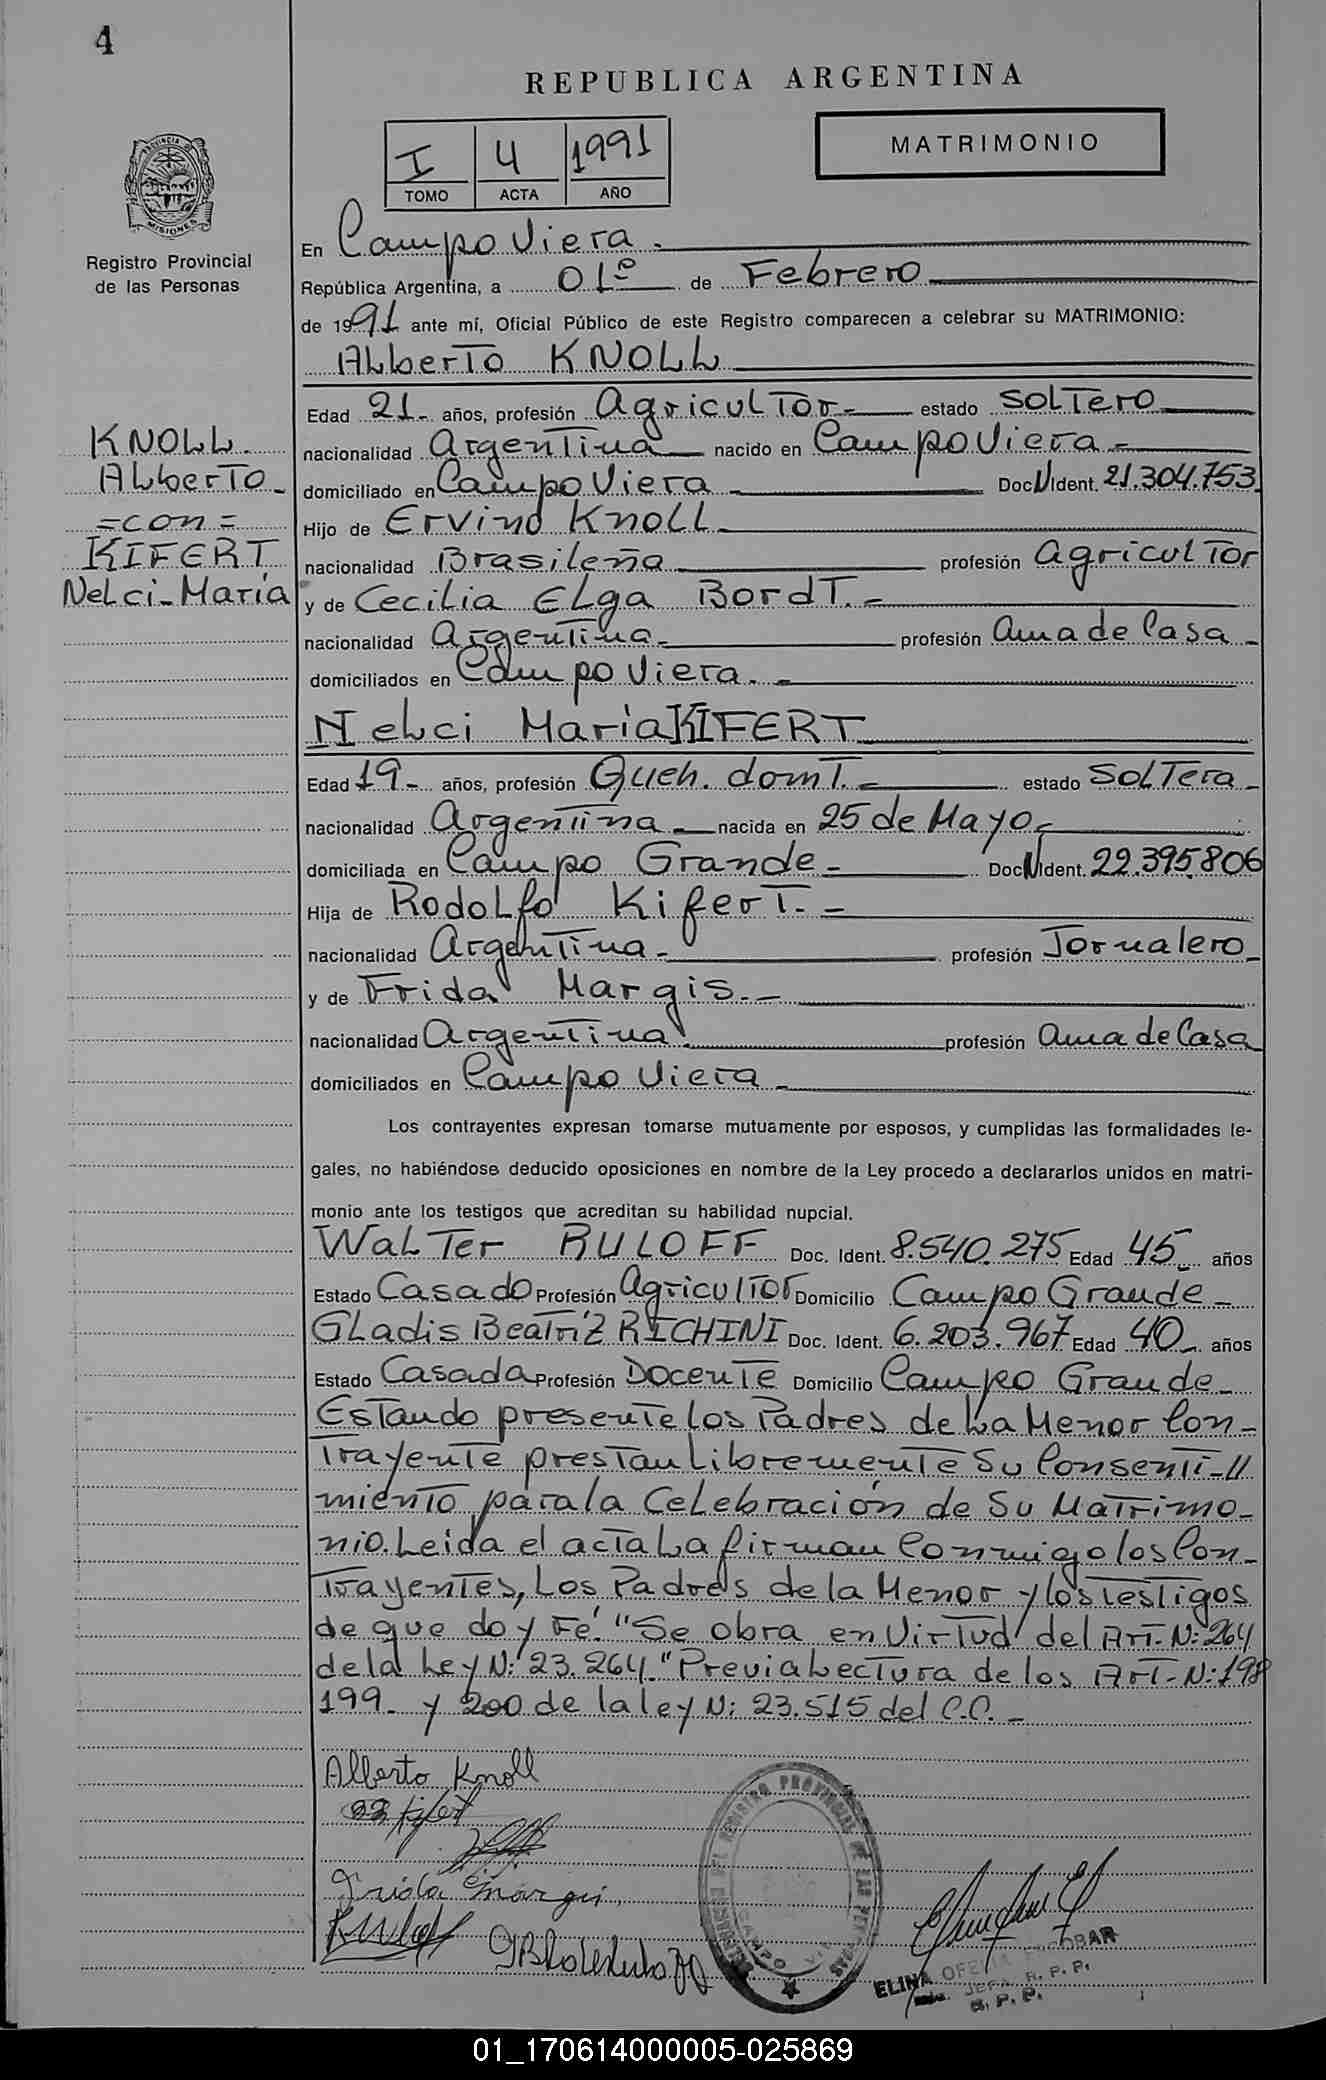 4
REPUBLICA ARGENTINA
MATRIMONIO
I 4 1991
TOMO ACTA AÑO
PROVINCIA DE
MISIONES
Registro Provincial
de las Personas
En Campo Viera.
República Argentina, a 01º de Febrero
de 1991 ante mí, Oficial Público de este Registro comparecen a celebrar su MATRIMONIO:
Alberto KNOLL
Edad 21- años, profesión Agricultor- estado Soltero
KNOLL
Alberto-
=con=
KIFERT
Nelci-María
nacionalidad Argentina nacido en Campo Viera-
domiciliado en Campo Viera Doc N Ident. 21.304.753
Hijo de Ervino Knoll
nacionalidad Brasileña profesión Agricultor
y de Cecilia Elga Bordt.-
nacionalidad Argentina- profesión Ama de Casa-
domiciliados en Campo Viera.-
Nelci María KIFERT
Edad 19- años, profesión Queh. domt.- estado Soltera-
nacionalidad Argentina- nacida en 25 de Mayo-
domiciliada en Campo Grande- Doc N Ident. 22.395.806
Hija de Rodolfo Kifert.-
nacionalidad Argentina- profesión Jornalero-
y de Frida Margis.-
nacionalidad Argentina. profesión Ama de Casa
domiciliados en Campo Viera-
Los contrayentes expresan tomarse mutuamente por esposos, y cumplidas las formalidades le-
gales, no habiéndose deducido oposiciones en nombre de la Ley procedo a declararlos unidos en matri-
monio ante los testigos que acreditan su habilidad nupcial.
Walter RULOFF Doc. Ident. 8.540.275 Edad 45 años
Estado Casado Profesión Agricultor Domicilio Campo Grande-
Gladis Beatríz RICHINI Doc. Ident. 6.203.967 Edad 40 años
Estado Casada Profesión Docente Domicilio Campo Grande-
Estando presente los Padres de la Menor Con-
trayente prestan libremente su Consenti-//
miento para la Celebración de Su Matrimo-
nio. Leida el acta la firman Conmigo los Con-
trayentes, Los Padres de la Menor y los testigos
de que doy Fé. "Se obra en Virtud del Art. N: 264
de la Ley N: 23.264." Previa Lectura de los Art- N: 198
199- y 200 de la ley N: 23.515 del C.C.-
Alberto Knoll
Frida Margis
DEL REGISTRO PROVINCIAL DE LAS PERSONAS
CAMPO VIERA
ELINA OFELIA ESCOBAR
JEFA R. P. P.
R. P. P.
01_170614000005-025869